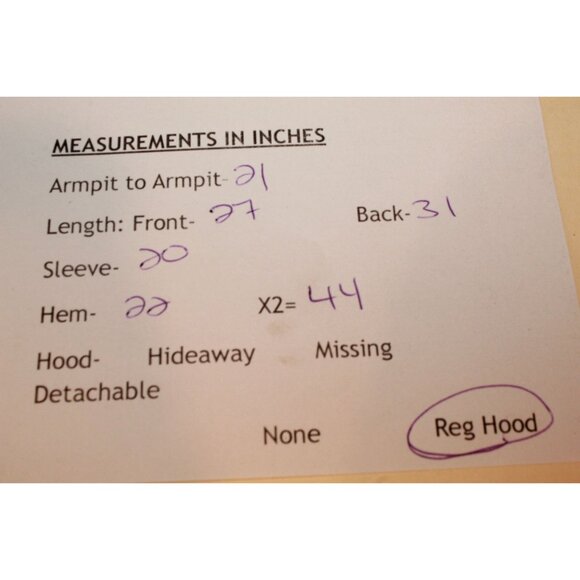 MEASUREMENTS IN INCHES
Armpit to Armpit- 21
Length: Front- 27 Back- 31
Sleeve- 20
Hem- 22 X2= 44
Hood- Hideaway Missing
Detachable
None Reg Hood